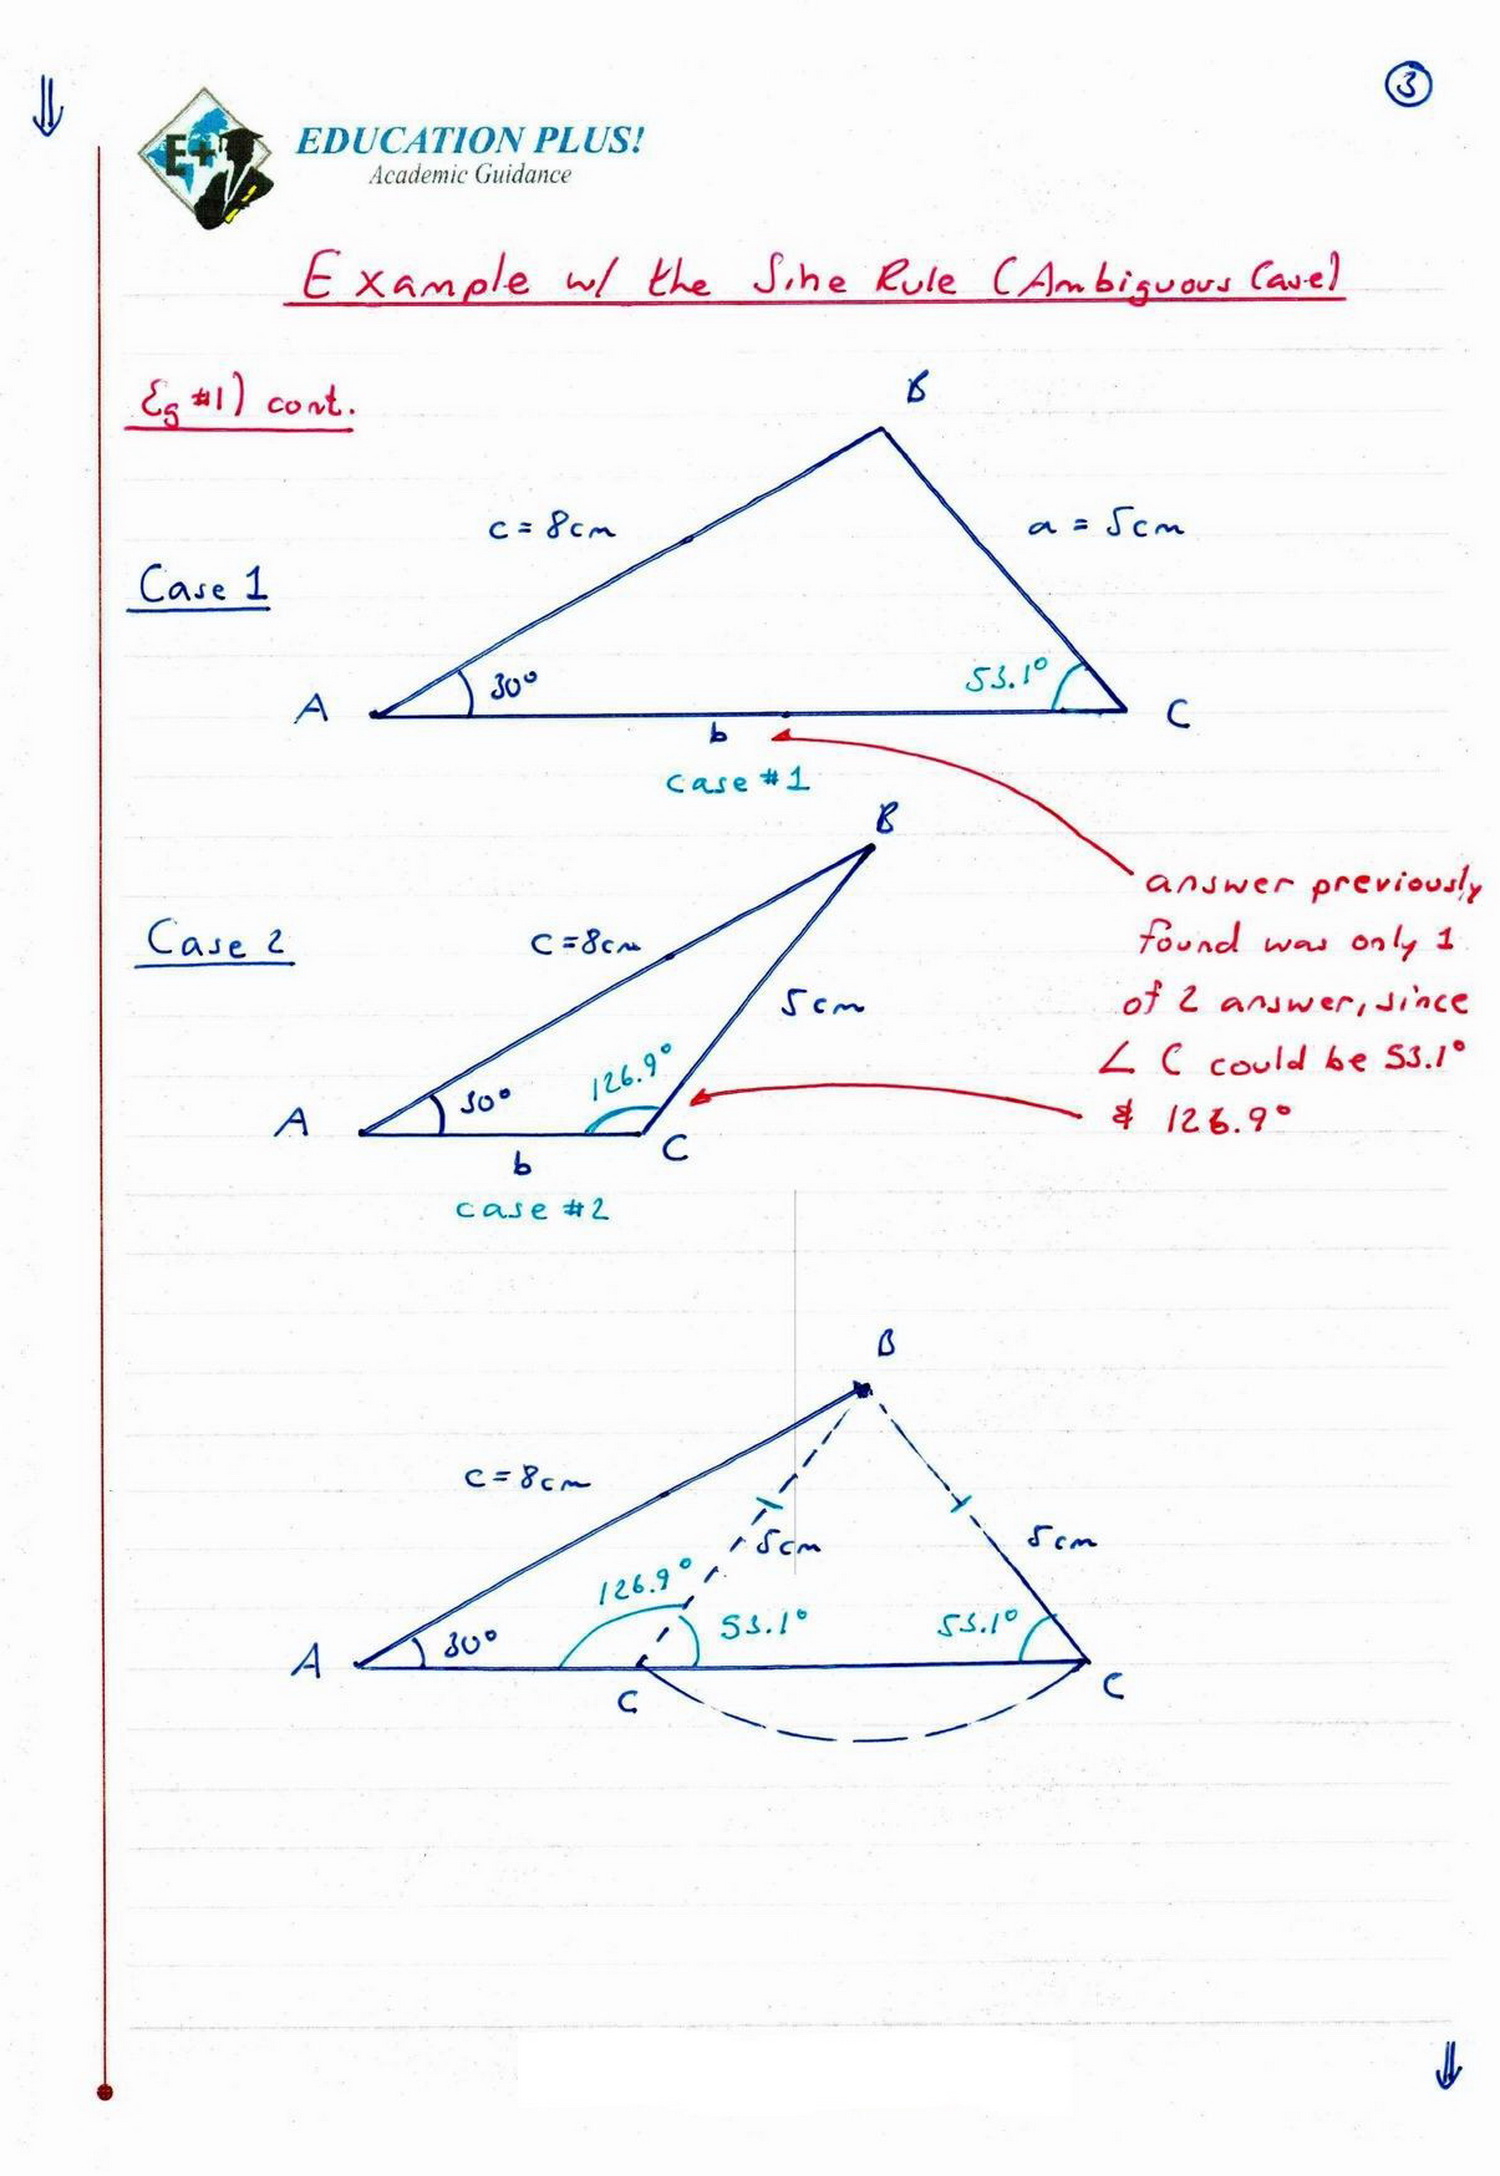 3
E+
EDUCATION PLUS!
Academic Guidance
Example w/ the Sine Rule (Ambiguous Case)
Eg #1) cont.
B
c = 8cm
a = 5cm
Case 1
A
30°
53.1°
C
b
case #1
B
answer previously
found was only 1
of 2 answer, since
∠ C could be 53.1°
& 126.9°
Case 2
c = 8cm
5cm
A
30°
126.9°
C
b
case #2
B
c = 8cm
5cm
5cm
126.9°
A
30°
53.1°
53.1°
C
C